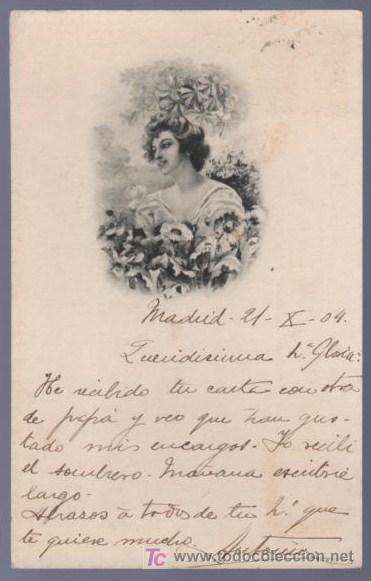 Madrid - 21 - X - 04.
Queridisima h.ª Gloria:
He recibido tu carta con otra
de papá y veo que han gus-
tado mis encargos. Yo recibi
el sombrero. Mañana escribiré
largo.
Abrazos á todos de tu h.ª que
te quiere mucho.
TC
todocoleccion.net